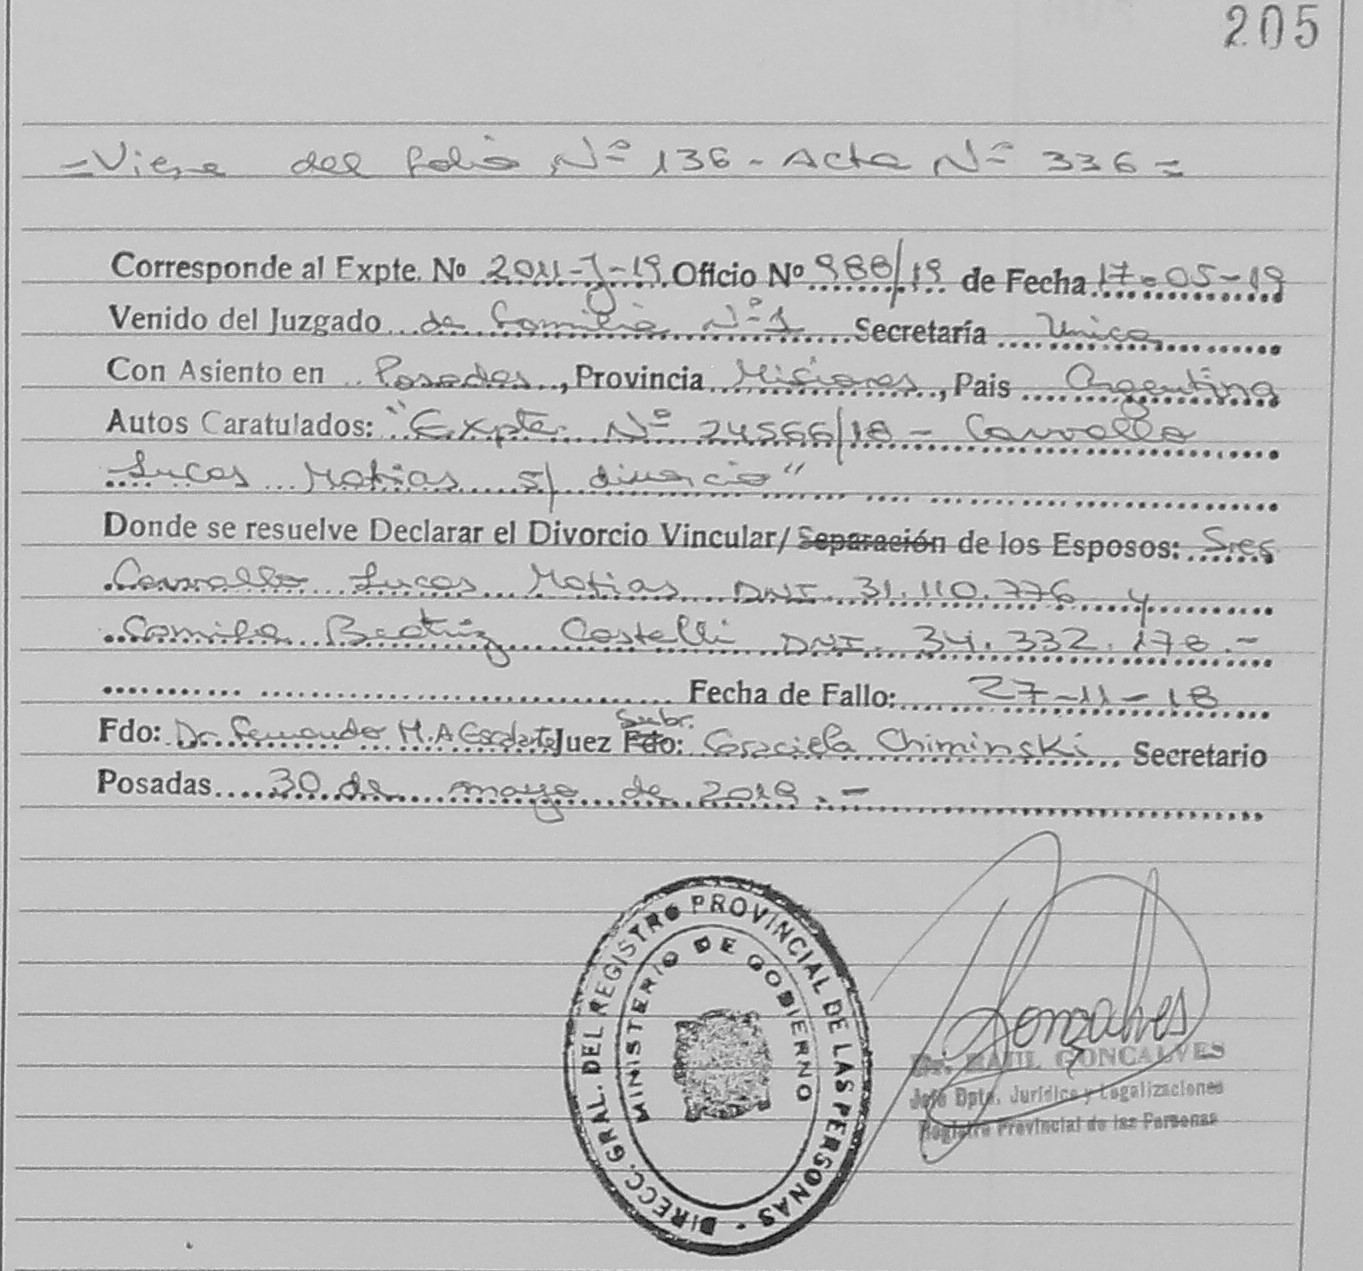 205
=Viene del folio Nº 136 - Acta Nº 336=
Corresponde al Expte. Nº 2011-J-19. Oficio Nº 988/19 de Fecha 17-05-19
Venido del Juzgado de Familia Nº 1 Secretaría Unica
Con Asiento en Posadas, Provincia Misiones, Pais Argentina
Autos Caratulados: "Expte. Nº 24566/18 - Carvallo
Lucas Matias s/ divorcio"
Donde se resuelve Declarar el Divorcio Vincular/ Separación de los Esposos: Sres
Carvallo Lucas Matias DNI. 31.110.776 y
Camila Beatriz Costelli DNI. 34.332.178.-
Fecha de Fallo: 27-11-18
Subr.
Fdo: Dr. Fernando M.A Juez Fdo: Graciela Chiminski Secretario
Posadas 30 de mayo de 2019.-
DIRECC. GRAL. DEL REGISTRO PROVINCIAL DE LAS PERSONAS -
MINISTERIO DE GOBIERNO
Gonçalves
Dr. RAUL GONCALVES
Jefe Dpto. Jurídico y Legalizaciones
Registro Provincial de las Personas